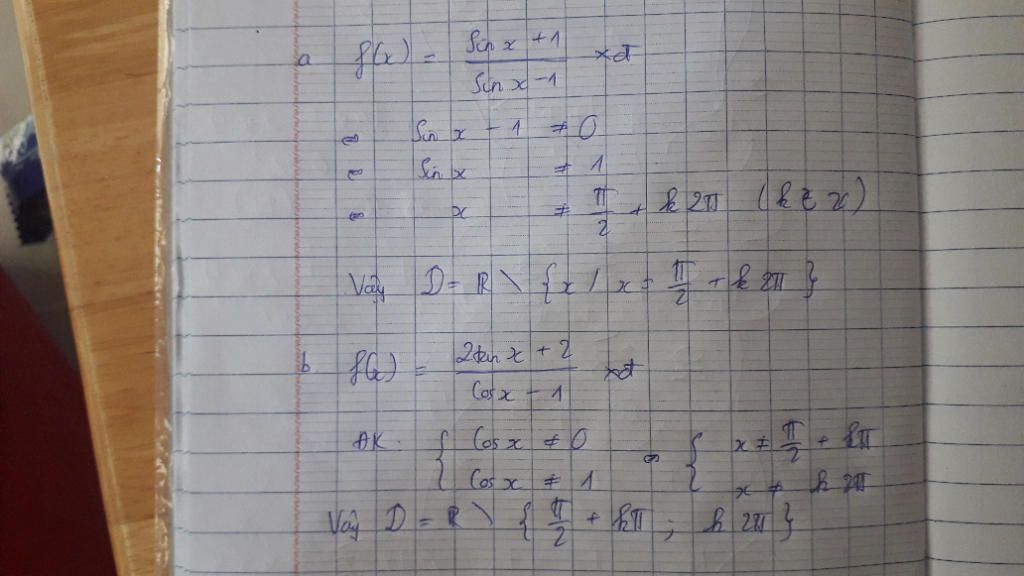 a f(x) = (Sin x + 1)/(Sin x - 1) xđ
⇔ Sin x - 1 ≠ 0
⇔ Sin x ≠ 1
⇔ x ≠ π/2 + k2π (k ∈ Z)
Vậy D = R \ {x / x = π/2 + k2π}
b f(x) = (2tan x + 2)/(Cos x - 1) xđ
ĐK: { Cos x ≠ 0 ⇔ { x ≠ π/2 + kπ
Cos x ≠ 1 x ≠ k2π
Vậy D = R \ {π/2 + kπ ; k2π}